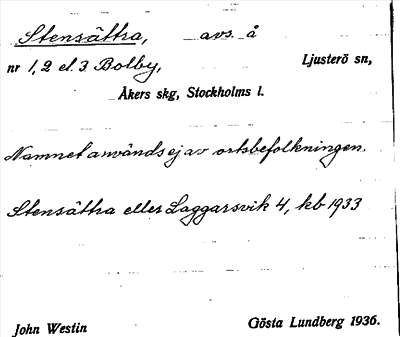 Stensättra, avs. å
nr 1, 2 el. 3 Bolby, Ljusterö sn,
Åkers skg, Stockholms l.
Namnet används ej av ortsbefolkningen.
Stensättra eller Laggarsvik 4, kb 1933
John Westin Gösta Lundberg 1936.